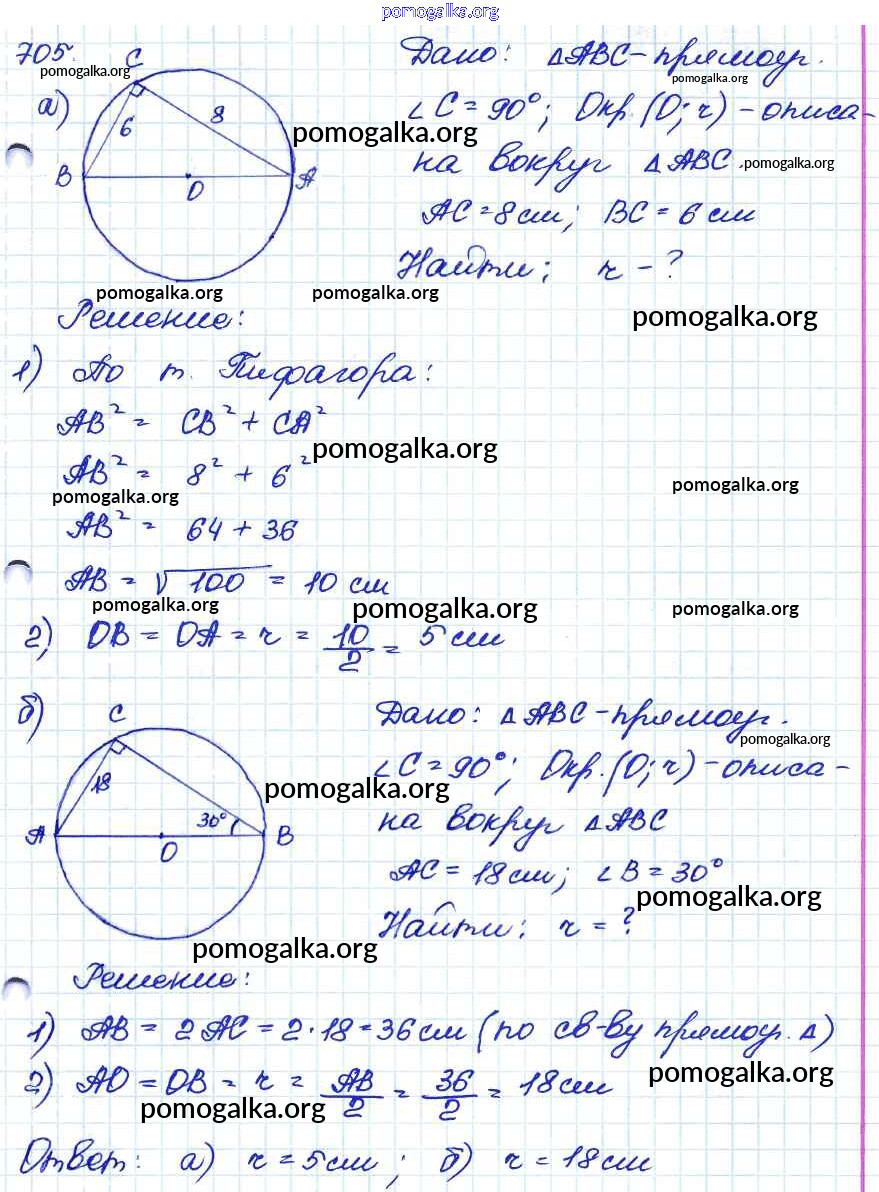 pomogalka.org
705.
pomogalka.org
Дано: ΔABC-прямоуг.
pomogalka.org
а)
C
6
8
B
O
A
pomogalka.org
∠C = 90°; Окр.(O; r) - описа-
на вокруг ΔABC.
pomogalka.org
AC = 8 см; BC = 6 см
Найти: r - ?
pomogalka.org pomogalka.org
pomogalka.org
Решение:
1) По т. Пифагора:
AB² = CB² + CA²
pomogalka.org
AB² = 8² + 6²
pomogalka.org pomogalka.org
AB² = 64 + 36
AB = √100 = 10 см
pomogalka.org pomogalka.org pomogalka.org
2) OB = OA = r = 10/2 = 5 см
б)
C
18
30°
A
O
B
pomogalka.org
Дано: ΔABC-прямоуг.
pomogalka.org
∠C = 90°; Окр.(O; r) - описа-
на вокруг ΔABC
AC = 18 см; ∠B = 30°
pomogalka.org
Найти: r = ?
pomogalka.org
Решение:
1) AB = 2AC = 2·18 = 36 см (по св-ву прямоуг. Δ)
2) AO = OB = r = AB/2 = 36/2 = 18 см
pomogalka.org
pomogalka.org
Ответ: а) r = 5 см; б) r = 18 см